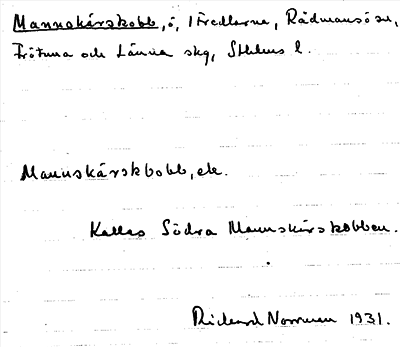 Mannskärskobb, ö, i Fredlarne, Rådmansö sn,
Frötuna och Länna skg, Sthlms l.
Mannskärskbobb, ek.
Kallas Södra Mannskärskobben.
Rickard Norrman 1931.